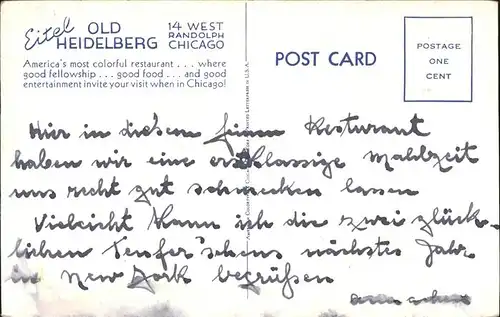 Eitel
OLD
HEIDELBERG
14 WEST
RANDOLPH
CHICAGO
America's most colorful restaurant . . . where
good fellowship . . . good food . . . and good
entertainment invite your visit when in Chicago!
POST CARD
POSTAGE
ONE
CENT
Hier in diesem feinen Resturant
haben wir eine erstklassige Mahlzeit
uns recht gut schmecken lassen
Vieleicht kann ich die zwei glück-
lichen nächstes Jahr
in New York begrüßen